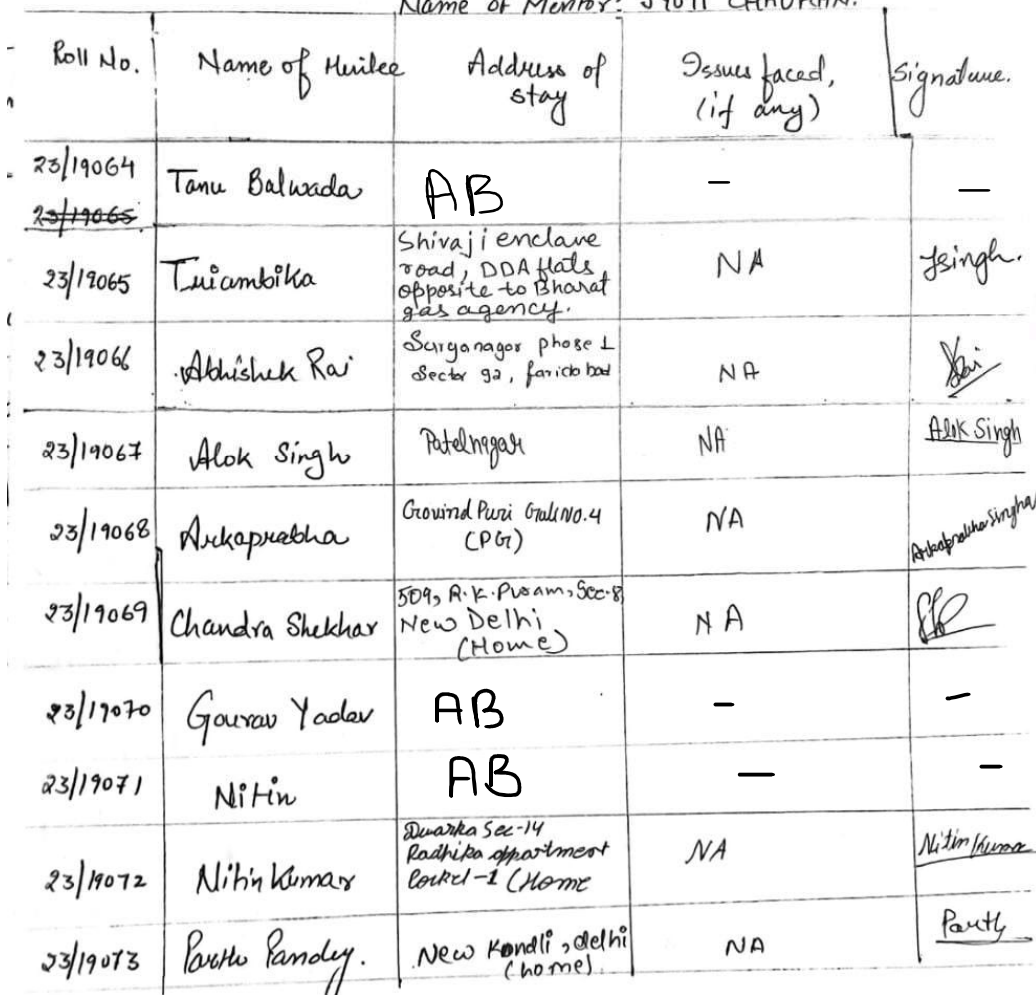 Name of Mentor: JYOTI CHAUHAN.
Roll No. Name of Mentee Address of stay Issues faced, (if any) Signature.
23/19064 Tanu Balwada AB – –
23/19065
23/19065 Triambika Shivaji enclave road, DDA flats, opposite to Bharat gas agency. NA Tsingh.
23/19066 Abhishek Rai Suryanagar phase 1 Sector 92, faridabad NA Rai
23/19067 Alok Singh Patelnagar NA Alok Singh
23/19068 Arkaprabha Govind Puri Gali No.4 (PG) NA Arkaprabha Singha
23/19069 Chandra Shekhar 509, R.K. Puram, Sec-8 New Delhi (Home) NA
23/19070 Gourav Yadav AB – –
23/19071 Nitin AB – –
23/19072 Nitin Kumar Dwarka Sec-14 Radhika appartment Pocket-1 (Home NA Nitin Kumar
23/19073 Parth Pandey. New Kondli, delhi (home). NA Parth